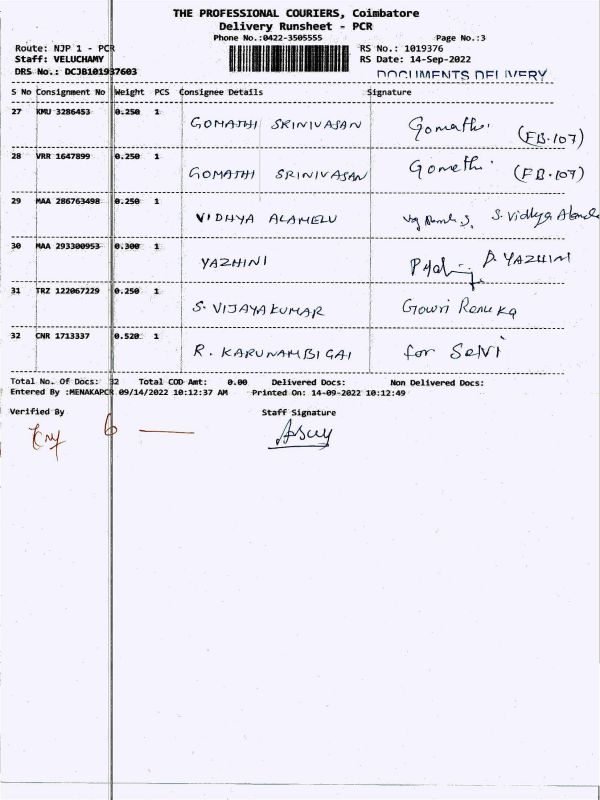 THE PROFESSIONAL COURIERS, Coimbatore
Delivery Runsheet - PCR
Phone No.:0422-3505555 Page No.:3
Route: NJP 1 - PCR RS No.: 1019376
Staff: VELUCHAMY RS Date: 14-Sep-2022
DRS No.: DCJB101937603 DOCUMENTS DELIVERY
S No Consignment No Weight PCS Consignee Details Signature
27 KMU 3286453 0.250 1 GOMATHI SRINIVASAN Gomathi. (FB-107)
28 VRR 1647899 0.250 1 GOMATHI SRINIVASAN Gomethi. (FB-107)
29 MAA 286763498 0.250 1 VIDHYA ALAMELU S. Vidhya
30 MAA 293300953 0.300 1 YAZHINI P. YAZHINI
31 TRZ 122067229 0.250 1 S. VIJAYAKUMAR Gowri Renuka
32 CNR 1713337 0.520 1 R. KARUNAMBIGAI for Selvi
Total No. Of Docs: 32 Total COD Amt: 0.00 Delivered Docs: Non Delivered Docs:
Entered By :MENAKAPCR 09/14/2022 10:12:37 AM Printed On: 14-09-2022 10:12:49
Verified By Staff Signature
6